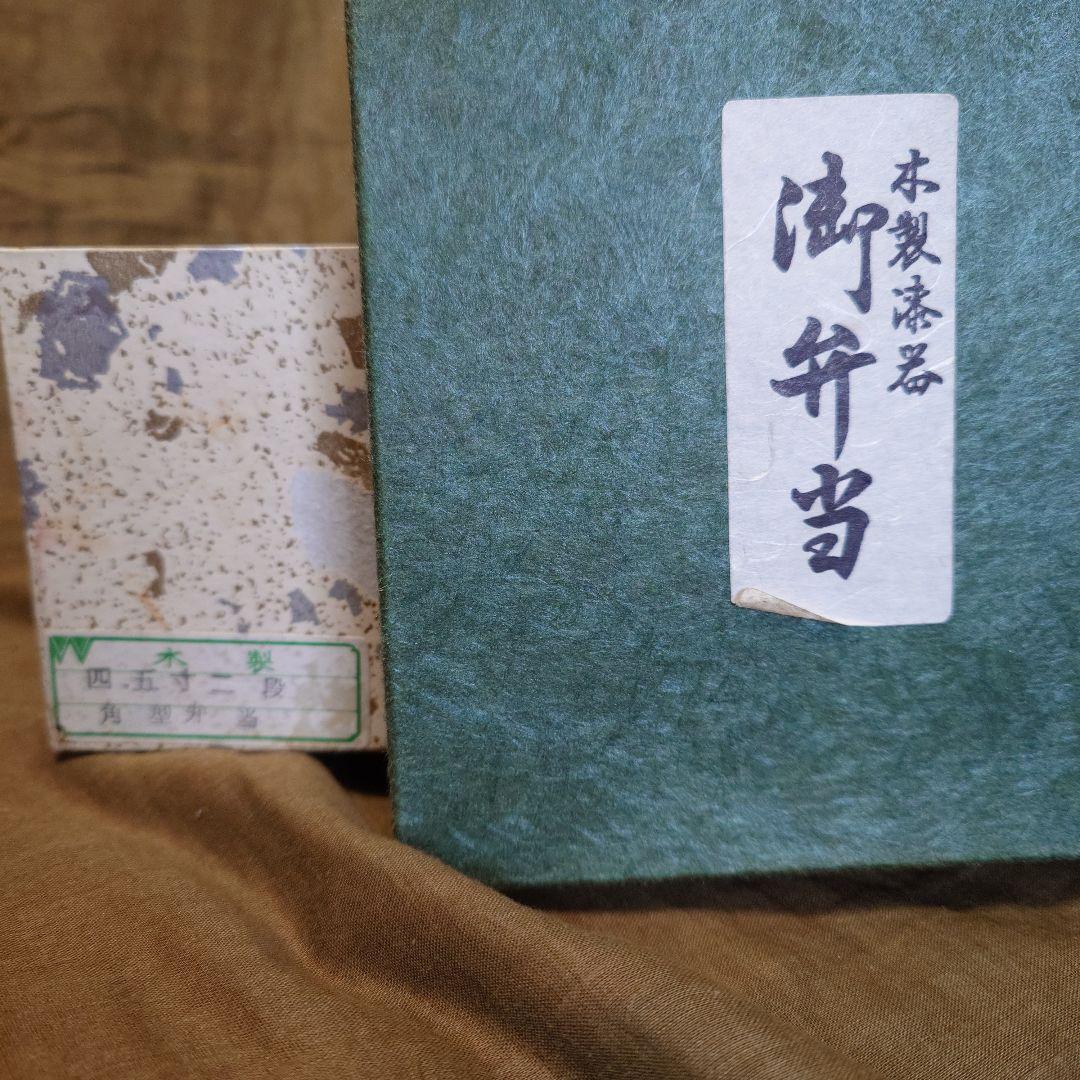 木製漆器
御弁当
木製
四.五寸二段
角型弁当